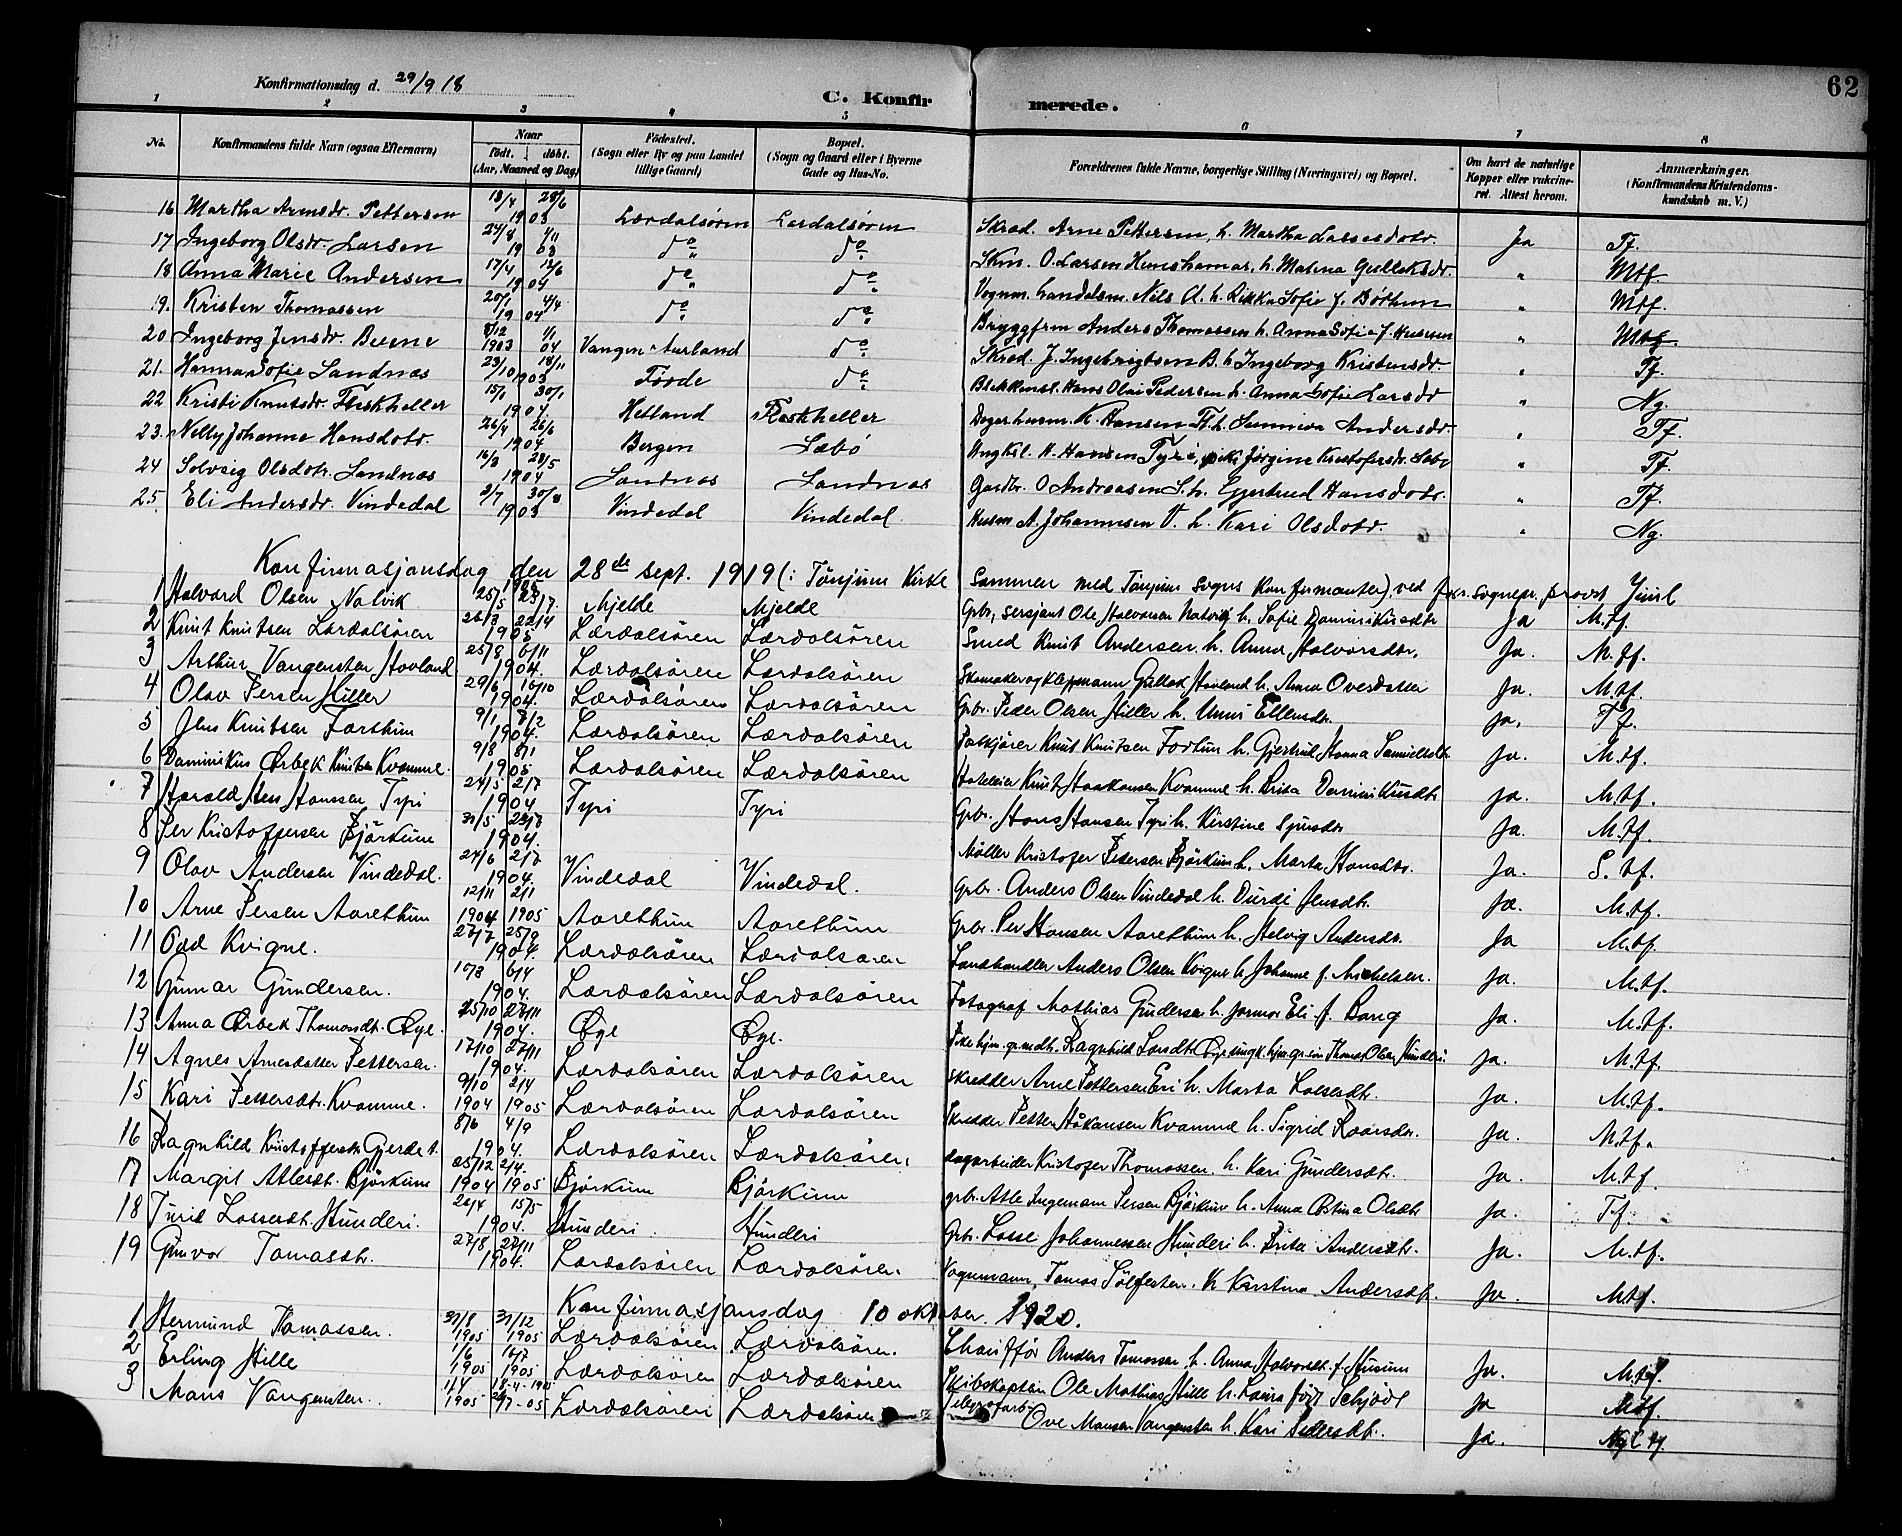 62
Konfirmationsdag d. 29/9 18
C. Konfirmerede.
1 2 3 4 5 6 7 8
No. Konfirmandens fulde Navn (ogsaa Efternavn) Naar födt. döbt. (Aar, Maaned og Dag) Födested. (Sogn eller By og paa Landet tillige Gaard) Bopæl. (Sogn og Gaard eller i Byerne Gade og Hus-No. Forældrenes fulde Navne, borgerlige Stilling (Næringsvei) og Bopæl. Om havt de naturlige Kopper eller vaccineret. Attest herom. Anmærkninger. (Konfirmandens Kristendomskundskab m. V.)
16 Martha Arnesdr. Pettersen 13/4 28/6 1903 Lærdalsören Lærdalsören Skræd. Arne Pettersen, h. Martha Lassesdotr. Ja Tf.
17 Ingeborg Olsdr. Larsen 24/8 1/11 1903 do do Skm. O. Larsen Hunshamar, h. Malena Gulleksdr. " Mtf.
18 Anna Marie Andersen 17/4 12/6 1904 do do Vognm. Landelsm. Nils A. h. Rikka Sofie f. Börhum " Mtf.
19. Kristen Thomassen 20/1 4/4 1904 do do Bryggfrm Anders Thomassen h. Anna Sofie f. Husum " Mtf.
20 Ingeborg Jensdr. Berne 8/12 1903 1/1 04 Vangen Aurland do Skræd. J. Ingebrigtsen B. h. Ingeborg Kristensdr. " Tf.
21. Hanna Sofie Sandnæs 23/10 18/11 1903 Förde do Blikkensl. Hans Olai Pedersen h. Anna Sofie Larsdr " Ng.
22 Kristi Knutsdr. Fleskheller 15/1 30/1 1904 Hetland Fleskheller K. Hansen Fl. h. Sunniva Andersdr. " Tf.
23. Nelly Johanne Hansdotr. 26/4 26/6 1904 Bergen Læbö Ungkl. H. Hansen Tyri, pike Jörgine Kristofersdr. Læbö " Tf.
24 Solveig Olsdotr. Sandnæs 16/3 23/5 1904 Sandnæs Sandnæs Gardbr. O Andreasen S. h. Gjertrud Hansdotr. " Tf.
25. Eli Andersdr. Vindedal 2/7 30/8 1903 Vindedal Vindedal. Husm A. Johannesen V. h. Kari Olsdotr. " Ng.
Konfirmasjonsdag den 28de sept. 1919 (: Tönjum Kirke Sammen med Tönjum sogns Konfirmanter). ved sognepr. provst Juul
1 Halvard Olsen Nalvik 25/5 23/7 1905 Mjelde Mjelde Grbr, sersjant Ole Halvorsen h. Sofie Dominikusdtr Ja M.tf.
2 Knut Knutsen Lærdalsören 26/3 22/4 1905 Lærdalsören Lærdalsören Smed Knut Andersen h. Anna Halvorsdtr. Ja. M.tf.
3 Arthur Vangensten Hovland 25/8 6/11 1904. Lærdalsören Lærdalsören Skomaker og Klippmann Gullak Hovland h. Anna Ovesdatter Ja. M.tf.
4 Olav Persen Hiller 29/6 16/10 1904. Lærdalsören Lærdalsören Grbr. Peder Olsen Hiller h. Unni Ellensdr. ja. Tf.
5 Jens Knutsen Forthun 9/1 8/2 1904. Lærdalsören Lærdalsören Knut Knutsen Fortun h. Gjertrud Hanna Samuelsdtr Ja. M.tf.
6 Dominikus Ørbek Knutsen Kvamme. 9/8 8/1 1905 Lærdalsören Lærdalsören Hotelleier Knut Haakonsen Kvamme h. Brita Dominikusdtr ja. M.tf.
7 Harald Hans Hanssen Tyri 24/5 2/7 1904 Tyri Tyri Grbr. Hans Hansen Tyri h. Kirstine Sjursdtr Ja. M.tf.
8 Per Kristoffersen Björkum 31/5 1904. Möller Kristofer Pedersen Björkum h. Marta Hansdtr. Ja. S.tf.
9 Olav Andersen Vindedal. 24/6 2/7 1904. Vindedal Vindedal. Grbr. Anders Olsen Vindedal h. Durdi Jensdtr. Ja. M.tf.
10 Arne Persen Aarethun 12/11 2/1 1904 1905 Aarethun Aarethun Grbr. Per Hansen Aarethun h. Helvig Andersdtr. Ja M.tf.
11 Odd Kvigne. 27/7 25/9 1904. Lærdalsören Lærdalsören Landhandler Anders Olsen Kvigne h. Johanne f. Michelsen. Ja. M.tf.
12 Gunnar Gundersen. 10/3 6/4 1904. Lærdalsören Lærdalsören Fotograf Mathias Gundersen h. Eli f. Bang Ja. M.tf.
13 Anna Ørbek Thomasdt. Öye. 25/10 27/11 1904. Öye Öye. Ragnhild Larsdtr Öye Thomas Olsen Hunderi. Ja. M.tf.
14 Agnes Arnesdatter Pettersen. 17/10 27/11 1904. Lærdalsören Lærdalsören Skredder Arne Pettersen Eri h. Marta Lassesdtr. Ja. M.tf.
15 Kari Pettersdtr. Kvamme. 9/10 2/4 1904 1905 Lærdalsören Lærdalsören Skredder Petter Håkonsen Kvamme h. Sigrid Ja. M.tf.
16 Ragnhild Kristoffersdtr Gjerde 8/6 4/9 1904. Lærdalsören Lærdalsören. dagarbeider Kristofer Thomassen. h. Kari Gundersdtr. Ja. M.tf.
17 Margit Atlesdt. Björkum 25/12 2/4. 1904 1905 Björkum Björkum grbr. Atle Ingemann Persen Björkum h. Anna Olsdtr Ja. Tf.
18 Turid Lassesdt. Hunderi. 26/4 15/5 1904. Hunderi. Hunderi Grbr. Lasse Johannessen Hunderi h. Brita Andersdtr. Ja. M.tf.
19 Gunvor Tomasdtr. 27/8 27/11 1904. Lærdalsören Lærdalsören. Vognmann, Tomas Sölfesten. h Kirstina Andersdt. Ja. M.tf.
Konfirmasjonsdag 10 oktober. 1920.
1 Hermund Tomassen. 31/8 31/12 1905 1905 Lærdalsören Lærdalsören. Chauffför Anders Tomassen h. Anna Halvorsdt. f. Husum Ja. M.tf.
2 Erling Hille 1/6 16/7 1905 1905 Lærdalsören Lærdalsören Skibskaptein Ole Mathias Hille h. Laura född Schjödt Ja M.tf.
3 Mans Vangensten. 1/4 1905 Lærdalsören Lærdalsören Ove Monsen Vangensten h. Kari Pedersdt. Ja.